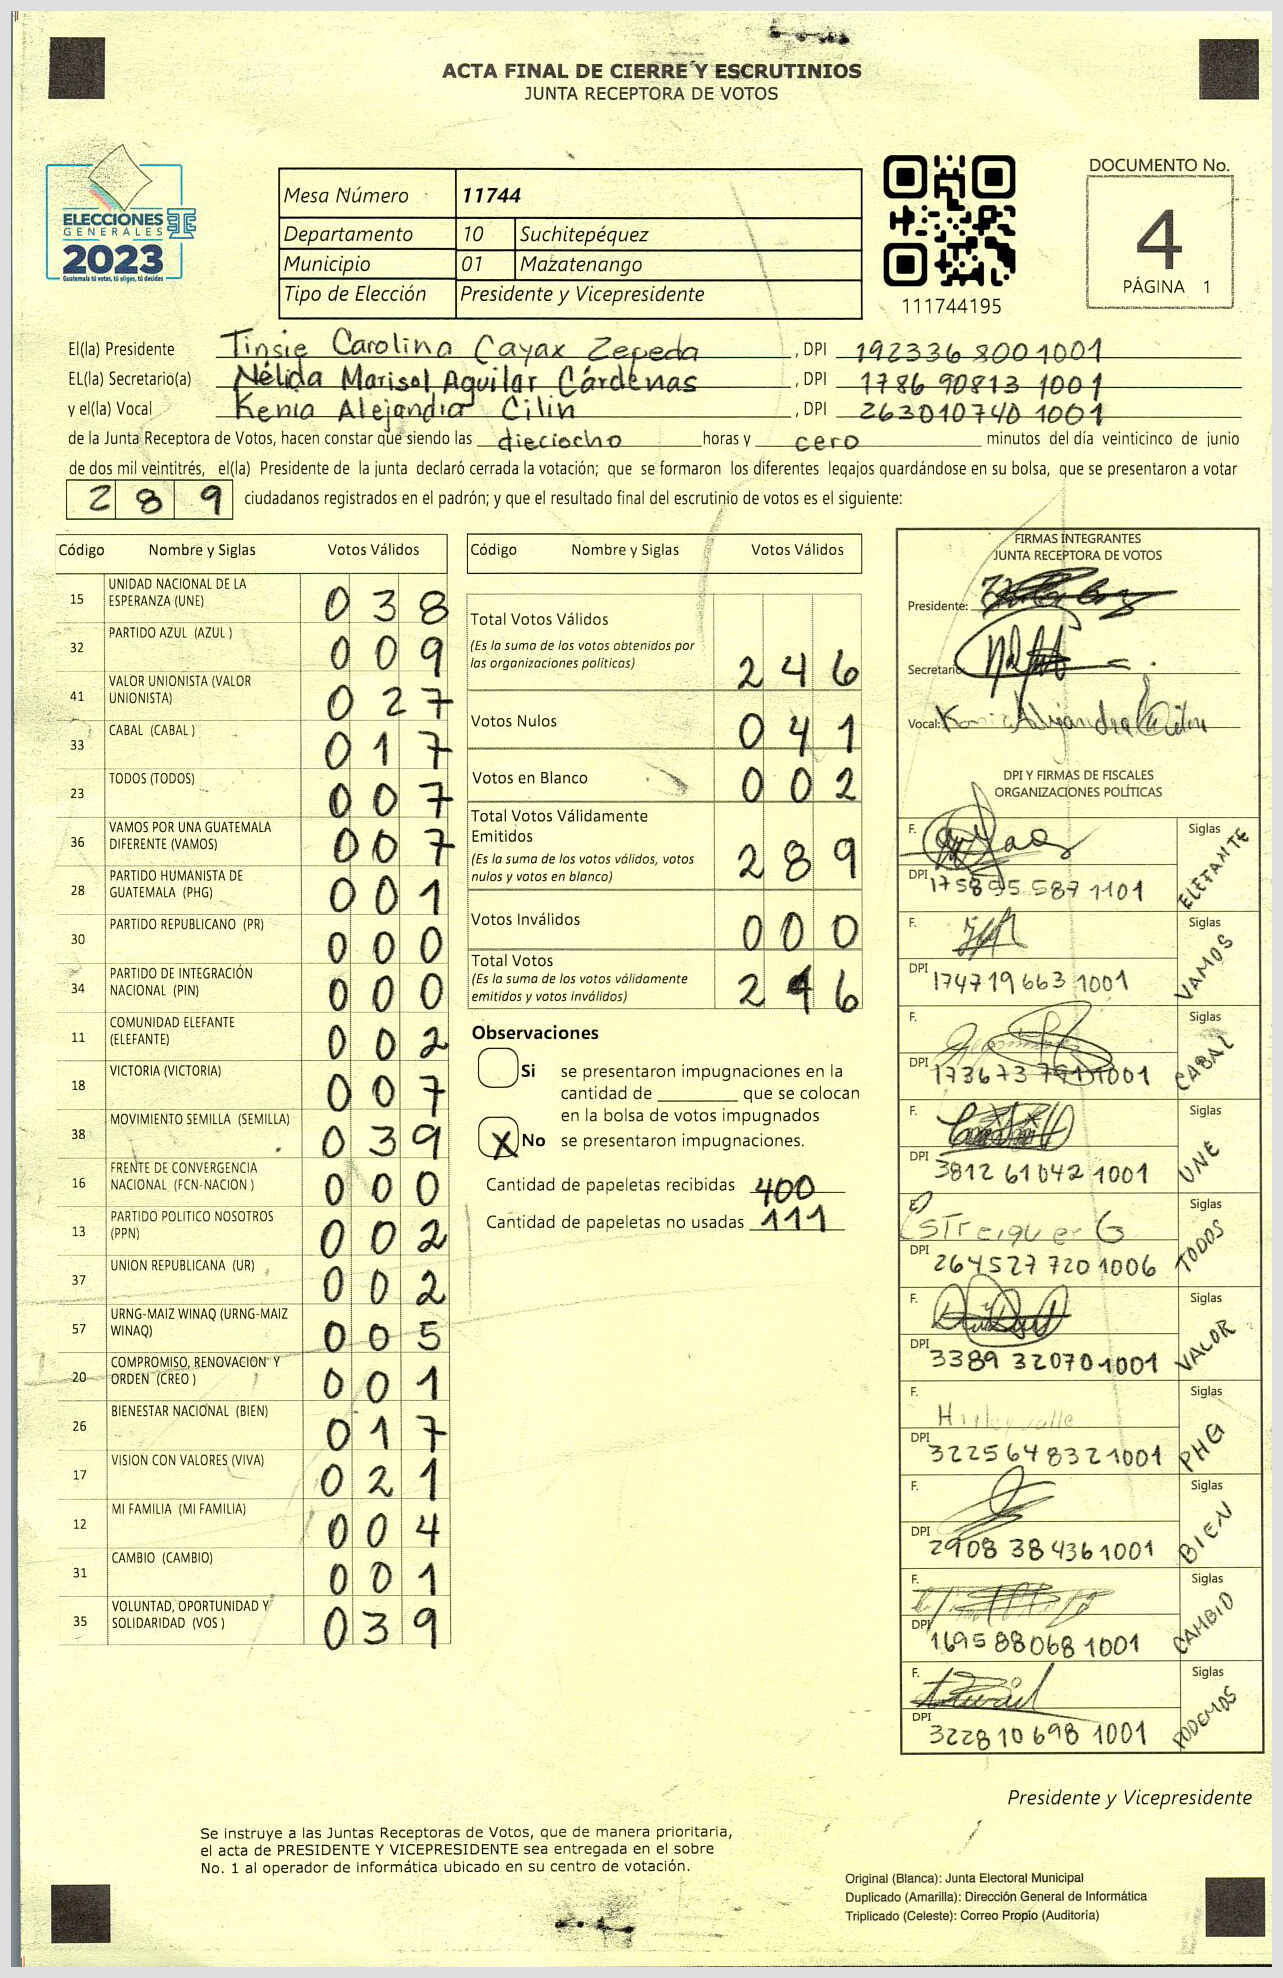 ACTA FINAL DE CIERRE Y ESCRUTINIOS
JUNTA RECEPTORA DE VOTOS
ELECCIONES
GENERALES
2023
Guatemala tú votas, tú eliges, tú decides
Mesa Número 11744
Departamento 10 Suchitepéquez
Municipio 01 Mazatenango
Tipo de Elección Presidente y Vicepresidente
111744195
DOCUMENTO No.
4
PÁGINA 1
El(la) Presidente Tinsie Carolina Cayax Zepeda, DPI 192336 800 1001
EL(la) Secretario(a) Nélida Marisol Aguilar Cárdenas, DPI 1786 90813 1001
y el(la) Vocal Kenia Alejandra Cilin, DPI 263010740 1001
de la Junta Receptora de Votos, hacen constar que siendo las dieciocho horas y cero minutos del día veinticinco de junio
de dos mil veintitrés, el(la) Presidente de la junta declaró cerrada la votación; que se formaron los diferentes legajos guardándose en su bolsa, que se presentaron a votar
2 8 9 ciudadanos registrados en el padrón; y que el resultado final del escrutinio de votos es el siguiente:
Código Nombre y Siglas Votos Válidos
15 UNIDAD NACIONAL DE LA ESPERANZA (UNE) 0 3 8
32 PARTIDO AZUL (AZUL ) 0 0 9
41 VALOR UNIONISTA (VALOR UNIONISTA) 0 2 7
33 CABAL (CABAL ) 0 1 7
23 TODOS (TODOS) 0 0 7
36 VAMOS POR UNA GUATEMALA DIFERENTE (VAMOS) 0 0 7
28 PARTIDO HUMANISTA DE GUATEMALA (PHG) 0 0 1
30 PARTIDO REPUBLICANO (PR) 0 0 0
34 PARTIDO DE INTEGRACIÓN NACIONAL (PIN) 0 0 0
11 COMUNIDAD ELEFANTE (ELEFANTE) 0 0 2
18 VICTORIA (VICTORIA) 0 0 7
38 MOVIMIENTO SEMILLA (SEMILLA) 0 3 9
16 FRENTE DE CONVERGENCIA NACIONAL (FCN-NACION ) 0 0 0
13 PARTIDO POLITICO NOSOTROS (PPN) 0 0 2
37 UNION REPUBLICANA (UR) 0 0 2
57 URNG-MAIZ WINAQ (URNG-MAIZ WINAQ) 0 0 5
20 COMPROMISO, RENOVACION Y ORDEN (CREO ) 0 0 1
26 BIENESTAR NACIONAL (BIEN) 0 1 7
17 VISION CON VALORES (VIVA) 0 2 1
12 MI FAMILIA (MI FAMILIA) 0 0 4
31 CAMBIO (CAMBIO) 0 0 1
35 VOLUNTAD, OPORTUNIDAD Y SOLIDARIDAD (VOS ) 0 3 9
Código Nombre y Siglas Votos Válidos
Total Votos Válidos
(Es la suma de los votos obtenidos por
las organizaciones políticas) 2 4 6
Votos Nulos 0 4 1
Votos en Blanco 0 0 2
Total Votos Válidamente
Emitidos
(Es la suma de los votos válidos, votos
nulos y votos en blanco) 2 8 9
Votos Inválidos 0 0 0
Total Votos
(Es la suma de los votos válidamente
emitidos y votos inválidos) 2 4 6
Observaciones
Si se presentaron impugnaciones en la
cantidad de ________ que se colocan
en la bolsa de votos impugnados
X No se presentaron impugnaciones.
Cantidad de papeletas recibidas 400
Cantidad de papeletas no usadas 111
FIRMAS INTEGRANTES
JUNTA RECEPTORA DE VOTOS
Presidente:
Secretario:
Vocal: Kenia Alejandra Cilin
DPI Y FIRMAS DE FISCALES
ORGANIZACIONES POLÍTICAS
F. Siglas ELEFANTE
DPI 175895 587 1101
F. Siglas VAMOS
DPI 174719 663 1001
F. Siglas CABAL
DPI 173673 791 1001
F. Siglas UNE
DPI 3812 61042 1001
F. Siglas TODOS
DPI 264527 720 1006
F. Siglas VALOR
DPI 3389 32070 1001
F. Siglas PHG
DPI 322564832 1001
F. Siglas BIEN
DPI 2908 38436 1001
F. Siglas CAMBIO
DPI 169588068 1001
F. Siglas PODEMOS
DPI 322810 698 1001
Presidente y Vicepresidente
Se instruye a las Juntas Receptoras de Votos, que de manera prioritaria,
el acta de PRESIDENTE Y VICEPRESIDENTE sea entregada en el sobre
No. 1 al operador de informática ubicado en su centro de votación.
Original (Blanca): Junta Electoral Municipal
Duplicado (Amarilla): Dirección General de Informática
Triplicado (Celeste): Correo Propio (Auditoría)